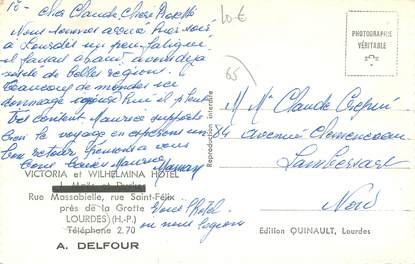 Cher Claude, Chère
Nous sommes arrivé hier soir
à Lourdes un peu fatigué
il faisait chaud, avons déjà
visité de belles régions.
Beaucoup de monde ici
dommage aujourd'hui il pleut
Très content Maurice supporte
bien le voyage en espérons un
bon retour
vous Maurice
Maman
VICTORIA et WILHELMINA HÔTEL
Rue Massabielle, rue Saint-Félix
près de la Grotte
LOURDES (H.-P.)
Téléphone 2.70
A. DELFOUR
Notre hôtel
où nous logeons
10 €
65
PHOTOGRAPHIE
VÉRITABLE
Reproduction interdite
M Me Claude Crepin
84 avenue Clemenceau
Lambersart
Nord
Edition QUINAULT, Lourdes